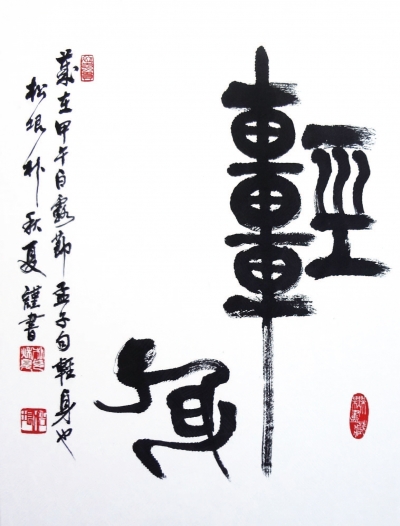 輕身
歲在甲午白露節孟子句輕身也
松垠朴秋夏謹書